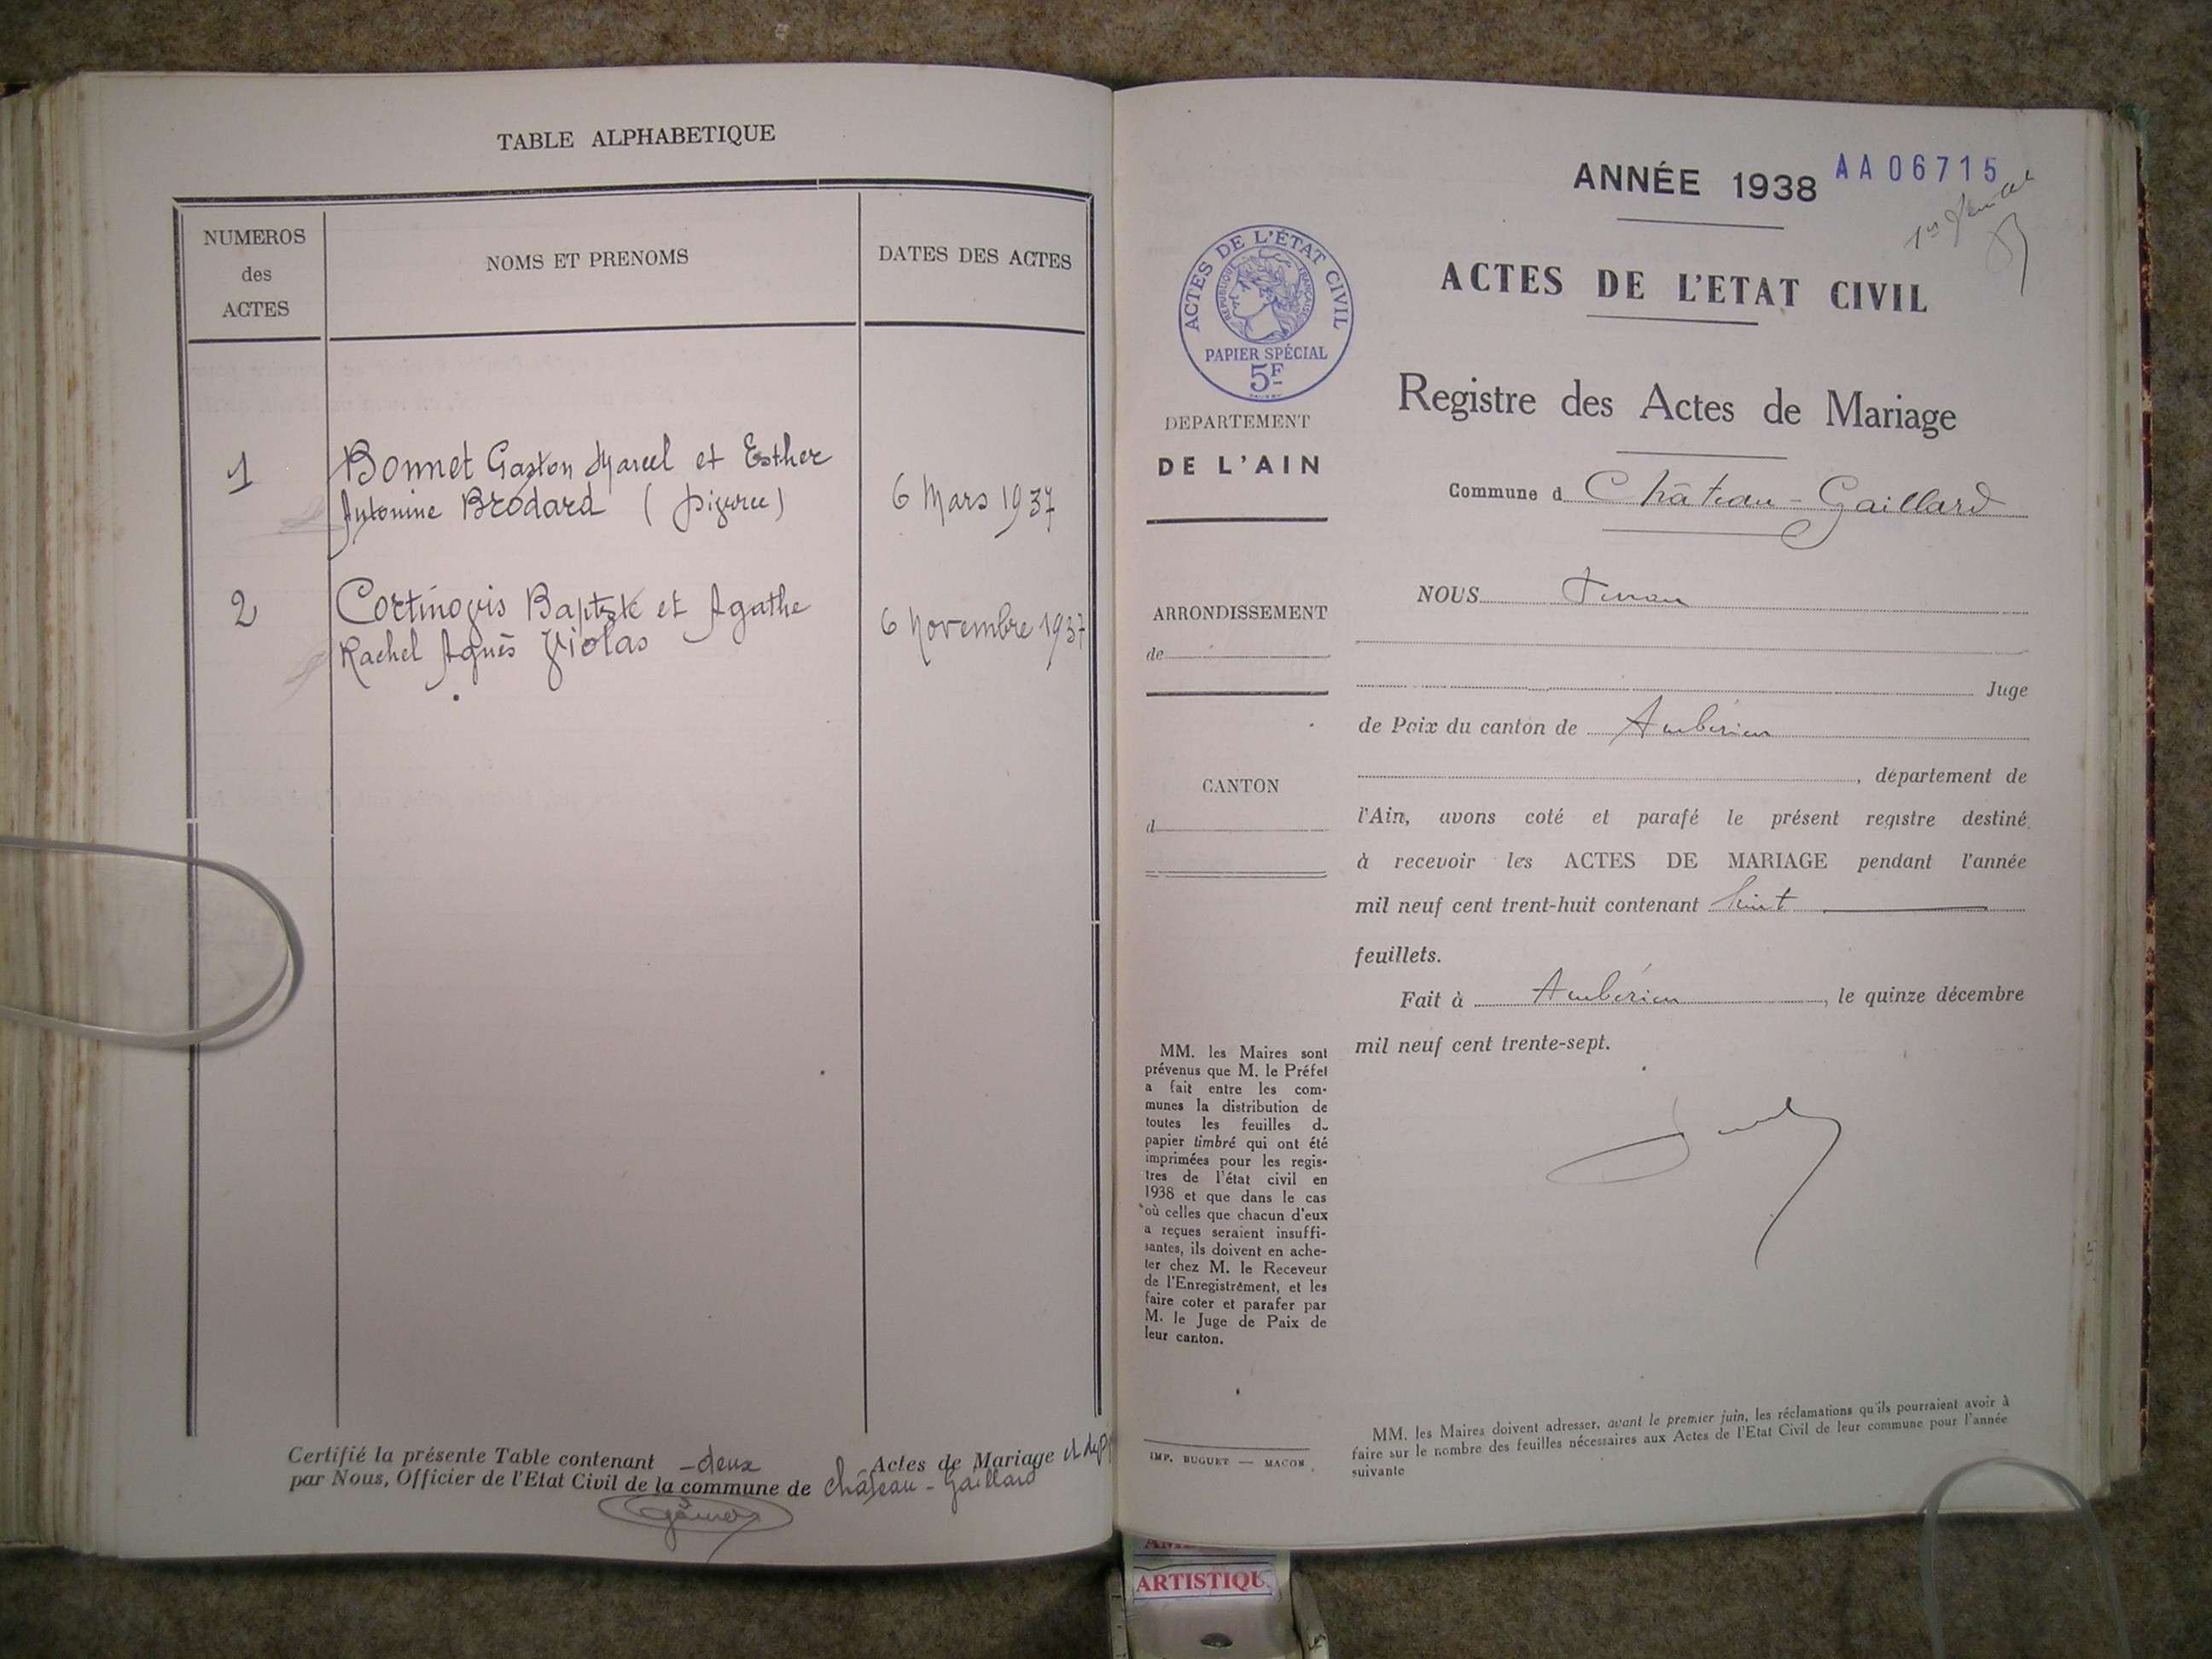 TABLE ALPHABETIQUE
NUMEROS
des
ACTES
NOMS ET PRENOMS
DATES DES ACTES
1
Bonnet Gaston Marcel et Esther
Antonine Brodard
6 Mars 1937
2
Cortinovis Baptiste et Agathe
Rachel Agnès Violas
6 Novembre 1937
Certifié la présente Table contenant - deux Actes de Mariage et
par Nous, Officier de l'Etat Civil de la commune de Château - Gaillard
ANNÉE 1938
AA06715
ACTES DE L'ÉTAT CIVIL
RÉPUBLIQUE FRANÇAISE
PAPIER SPÉCIAL
5F
ACTES DE L'ETAT CIVIL
Registre des Actes de Mariage
DEPARTEMENT
DE L'AIN
Commune d Château - Gaillard
ARRONDISSEMENT
de
CANTON
d
NOUS
Juge
de Paix du canton de Ambérieu
, département de
l'Ain, avons coté et parafé le présent registre destiné
à recevoir les ACTES DE MARIAGE pendant l'année
mil neuf cent trent-huit contenant huit
feuillets.
Fait à Ambérieu, le quinze décembre
mil neuf cent trente-sept.
MM. les Maires sont
prévenus que M. le Préfet
a fait entre les com-
munes la distribution de
toutes les feuilles du
papier timbré qui ont été
imprimées pour les regis-
tres de l'état civil en
1938 et que dans le cas
où celles que chacun d'eux
a reçues seraient insuffi-
santes, ils doivent en ache-
ter chez M. le Receveur
de l'Enregistrement, et les
faire coter et parafer par
M. le Juge de Paix de
leur canton.
IMP. BUGUET — MACON
MM. les Maires doivent adresser, avant le premier juin, les réclamations qu'ils pourraient avoir à
faire sur le nombre des feuilles nécessaires aux Actes de l'Etat Civil de leur commune pour l'année
suivante
ARTISTIQU